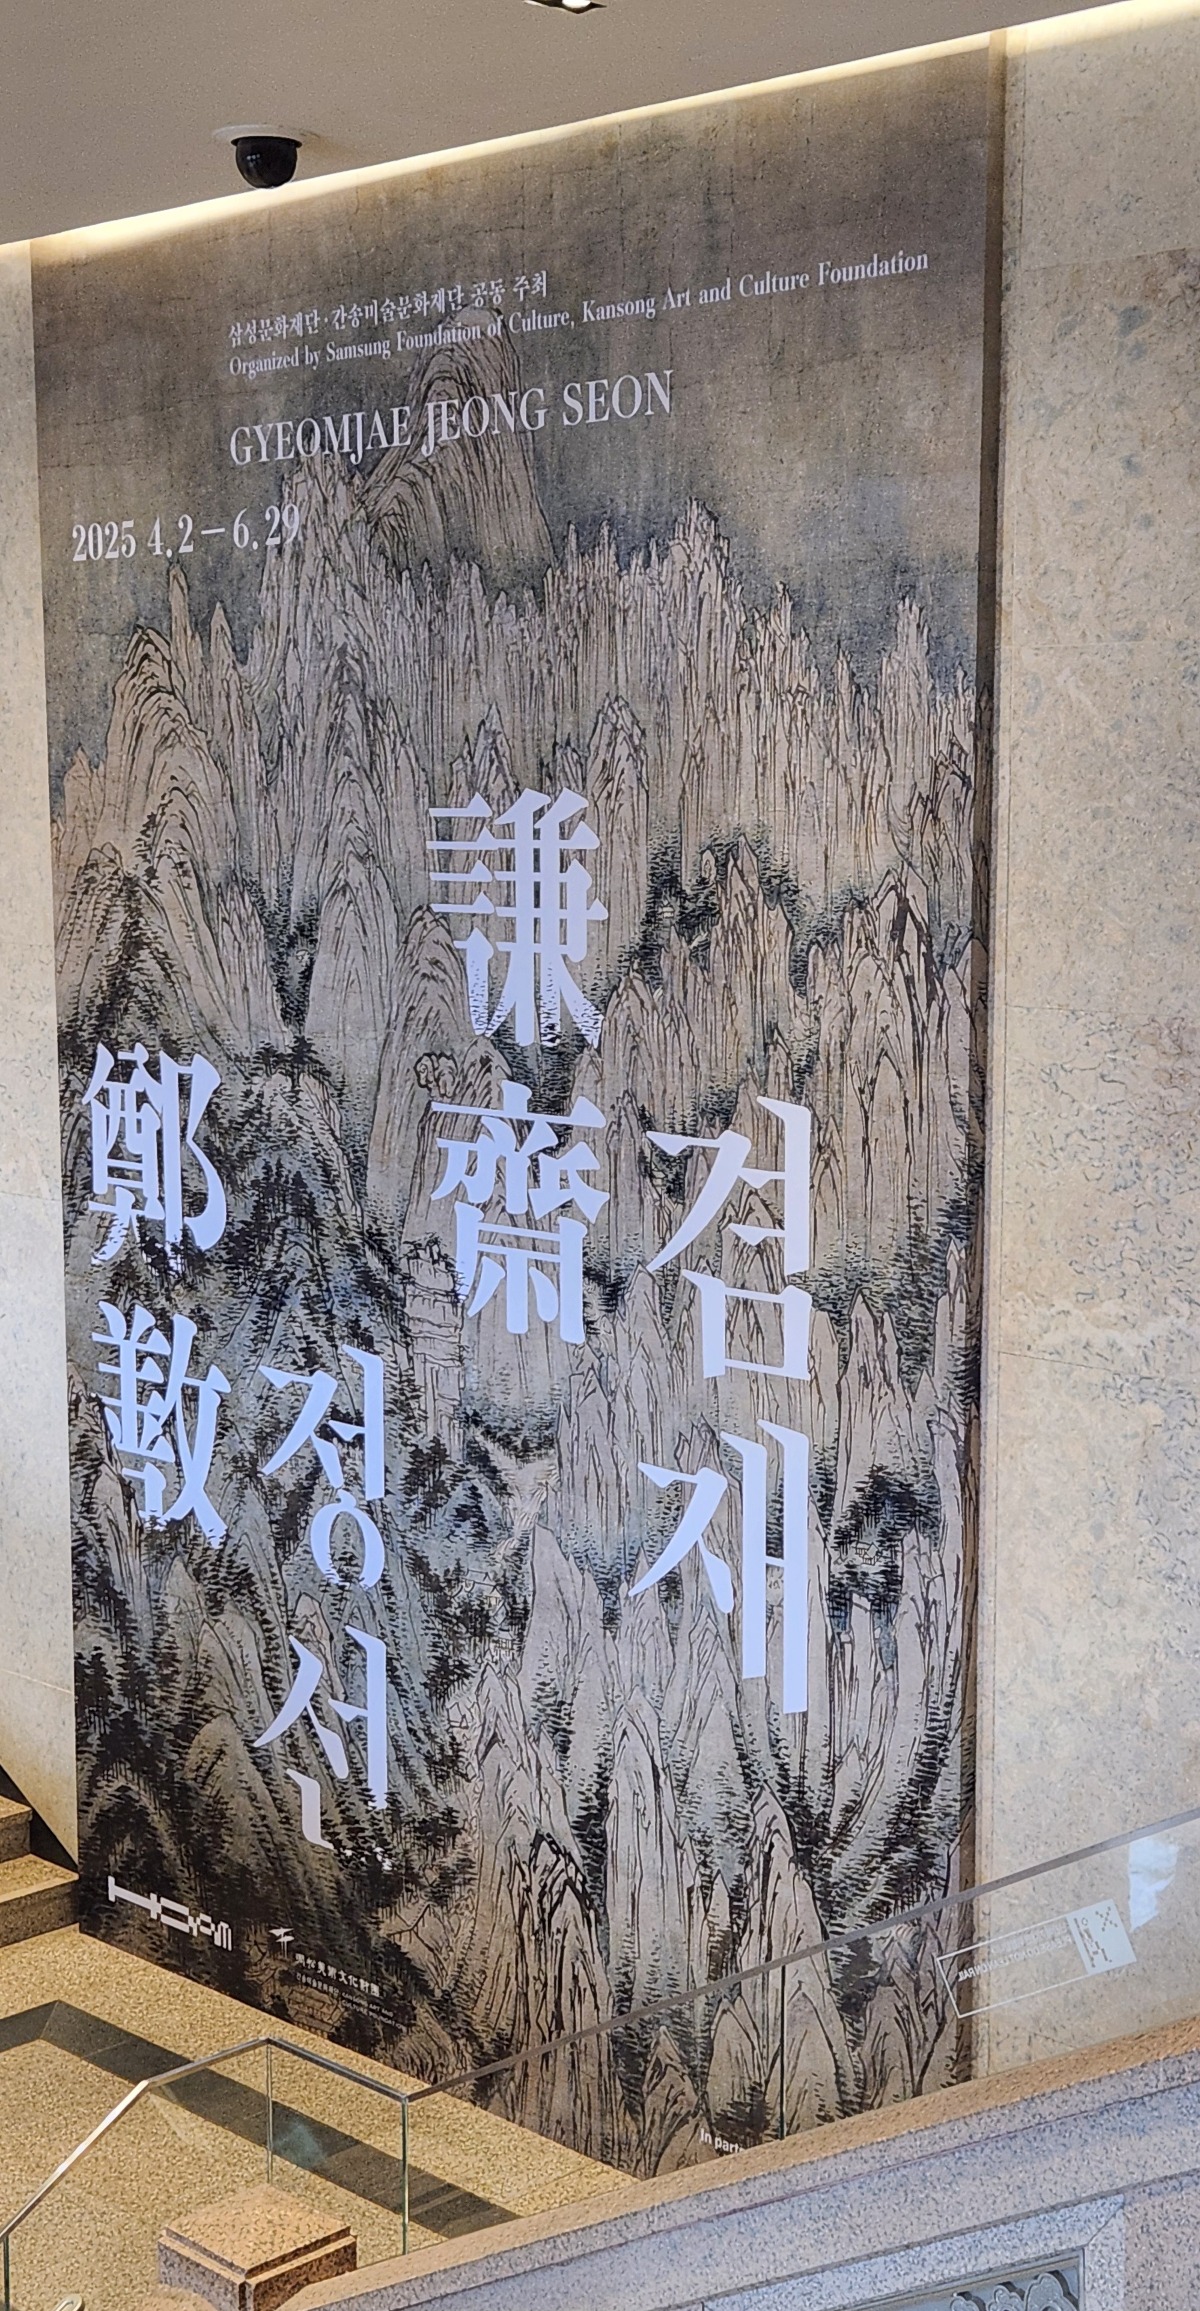 삼성문화재단·간송미술문화재단 공동 주최
Organized by Samsung Foundation of Culture, Kansong Art and Culture Foundation
GYEOMJAE JEONG SEON
2025 4.2–6.29
謙齋
겸재
鄭敾
정선
HOAM
澗松美術文化財團
In part